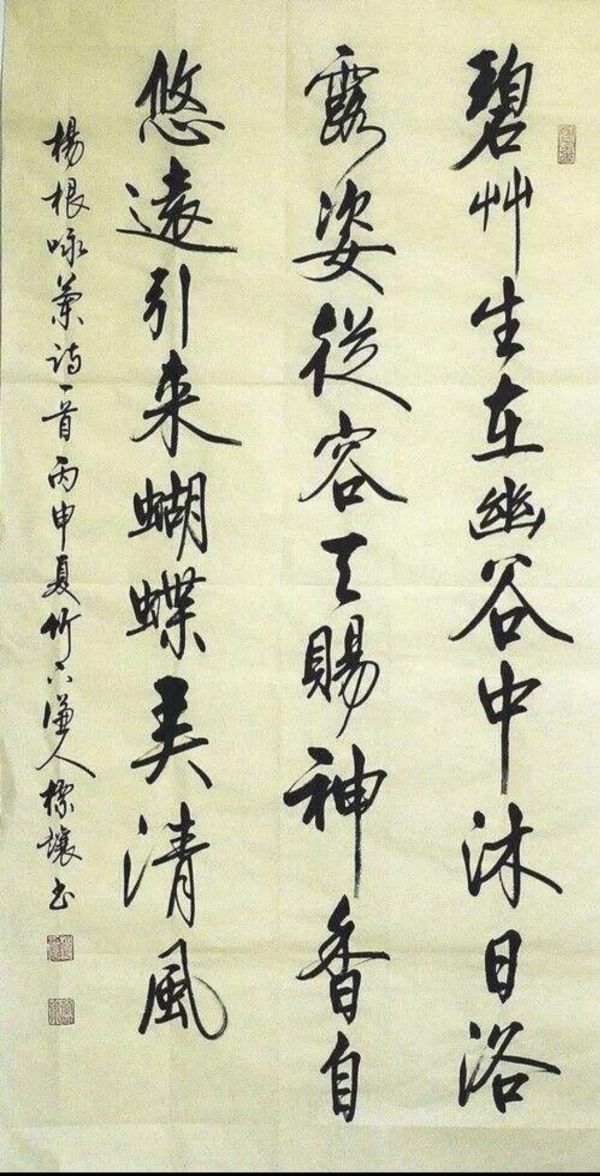 碧艸生在幽谷中沐日浴
露姿從容天賜神香自
悠遠引来蝴蝶弄清風
楊根咏蘭诗一首丙申夏竹下謙人讓书